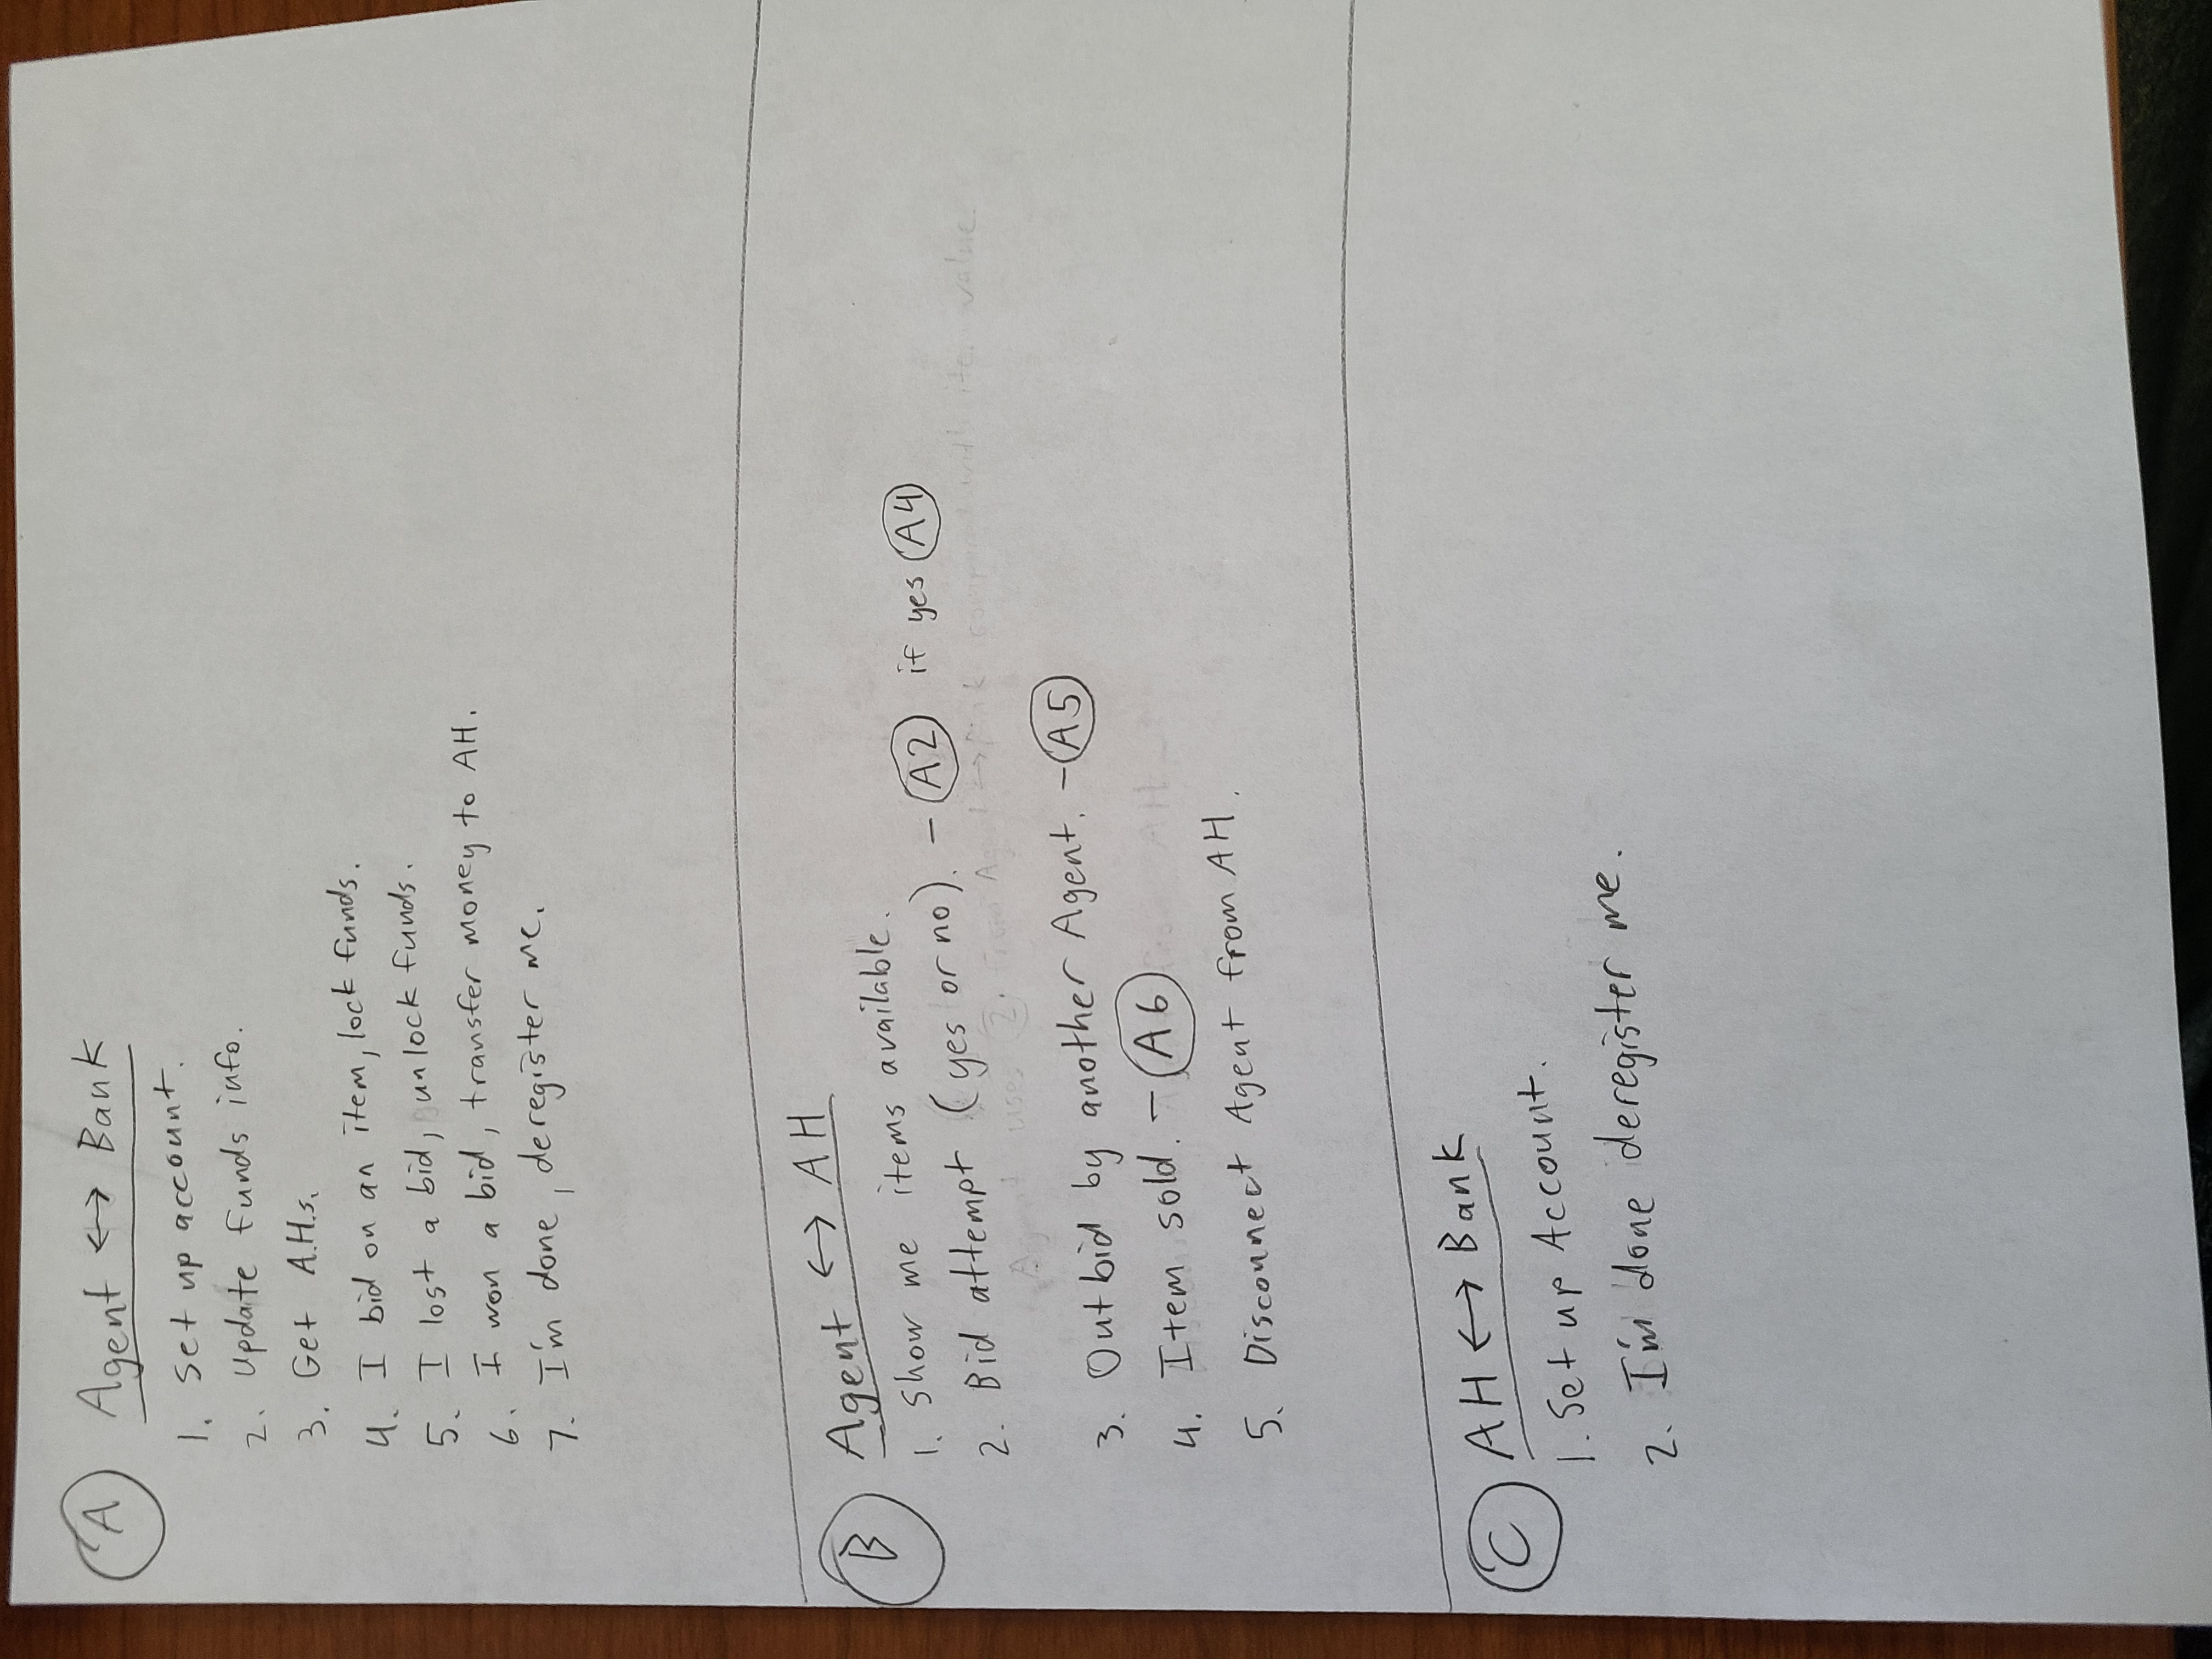 A Agent ↔ Bank
1. Set up account.
2. Update funds info.
3. Get A.H.s.
4. I bid on an item, lock funds.
5. I lost a bid, unlock funds.
6. I won a bid, transfer money to AH.
7. I'm done, deregister me.
B Agent ↔ AH
1. Show me items available.
2. Bid attempt (yes or no). - A2 if yes A4
Agent uses 2. from Agent ↔ Bank compared with item value.
3. Outbid by another Agent. - A5
4. Item sold. - A6
5. Disconnect Agent from AH.
C AH ↔ Bank
1. Set up Account.
2. I'm done deregister me.